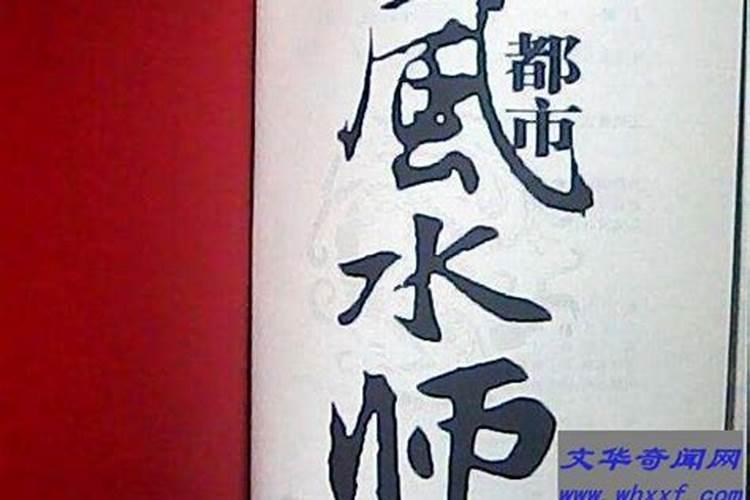 都市
風水师
文华奇闻网
www.whxxf.com